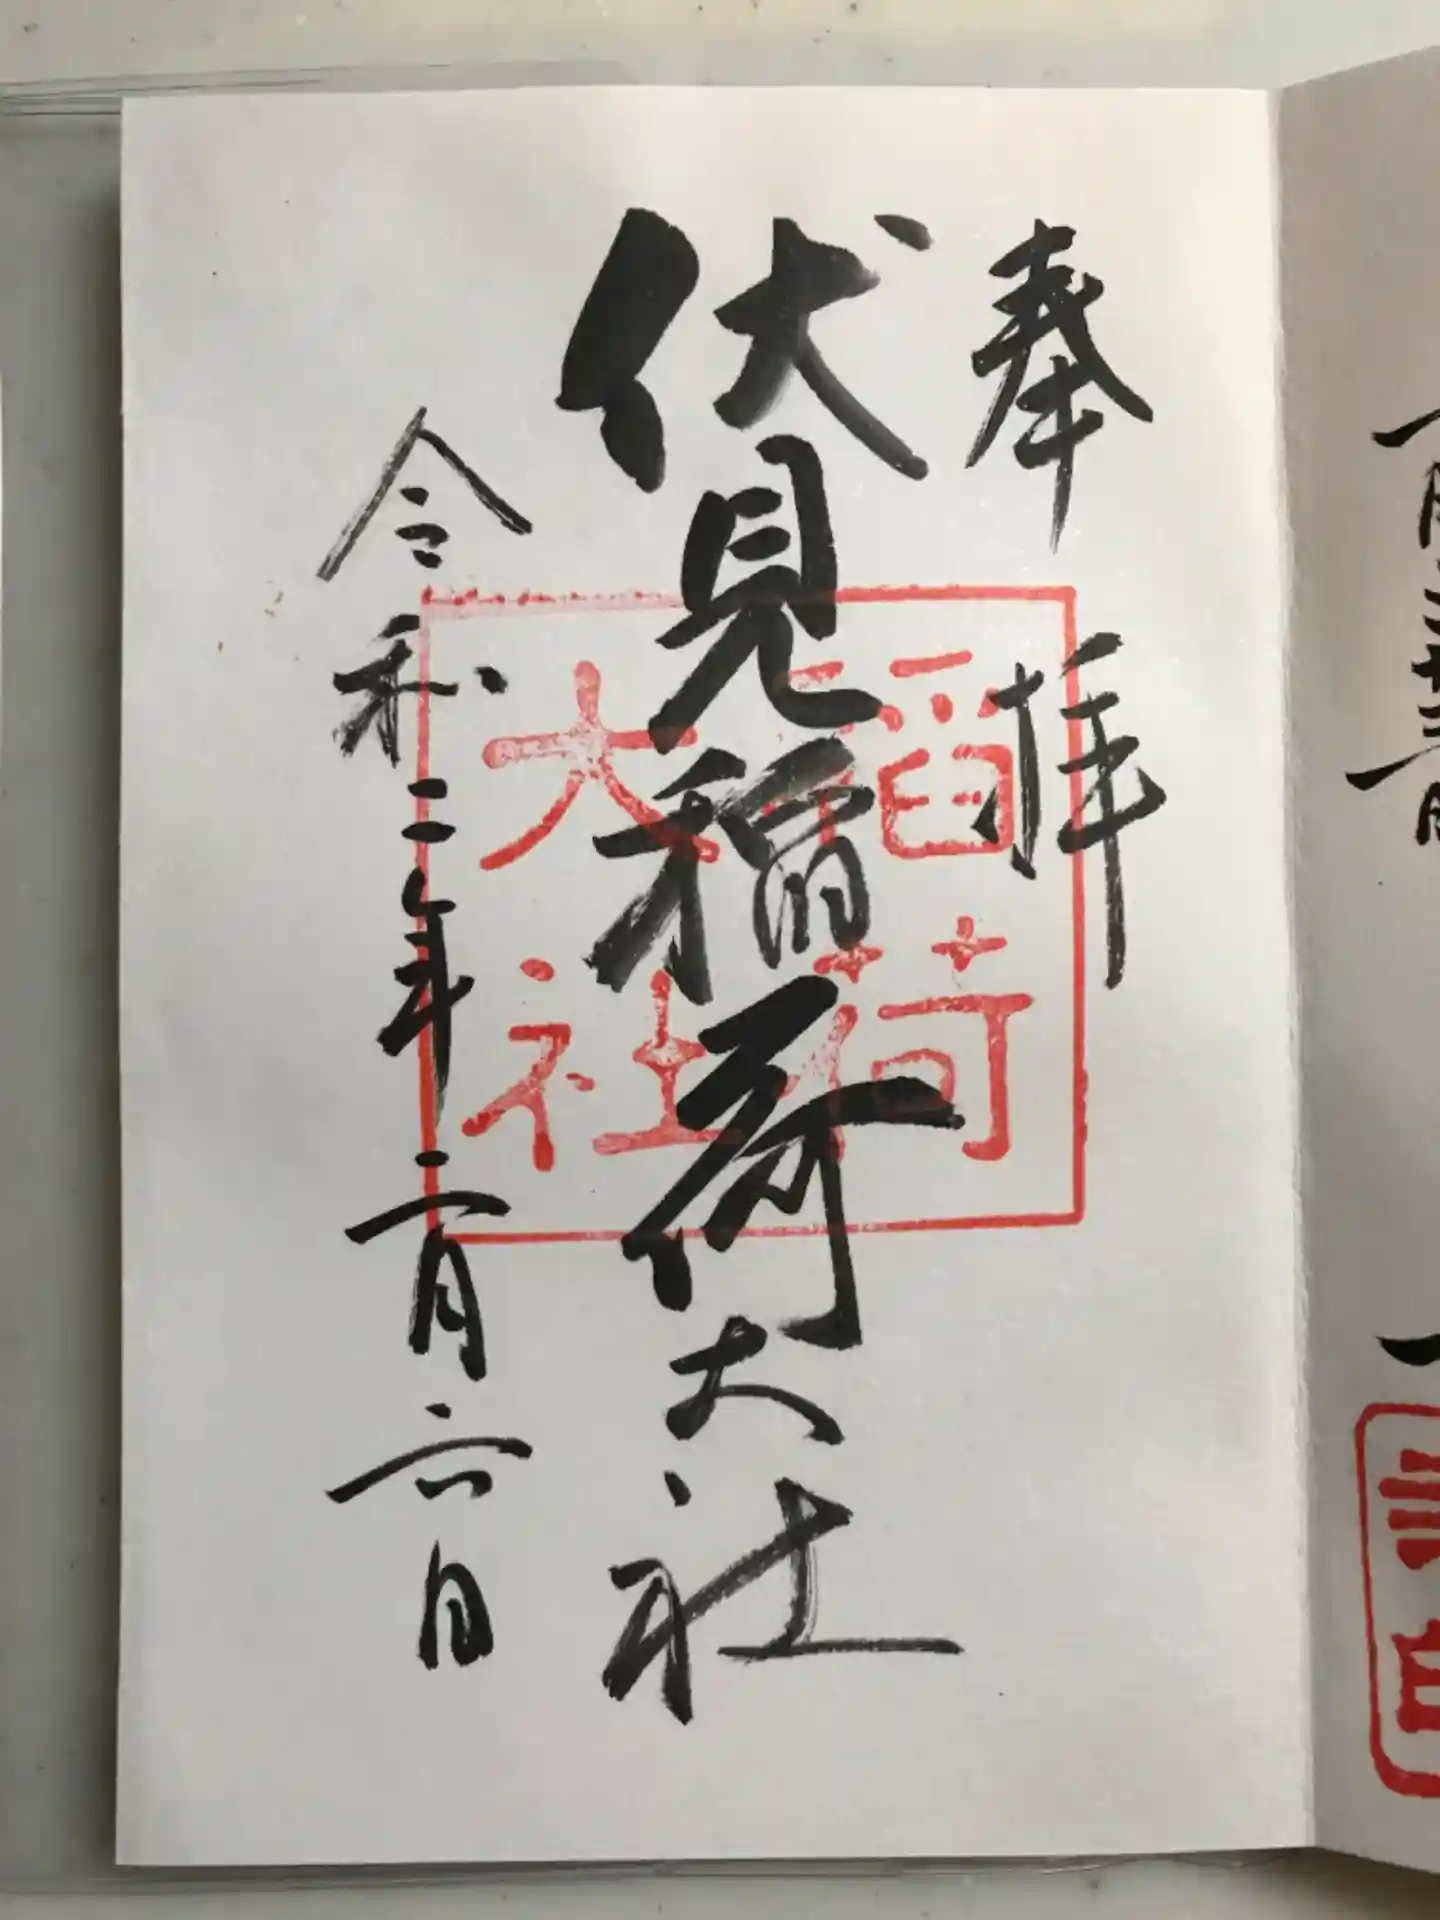 奉拝
伏見稲荷大社
令和二年二月六日
稲荷
大社